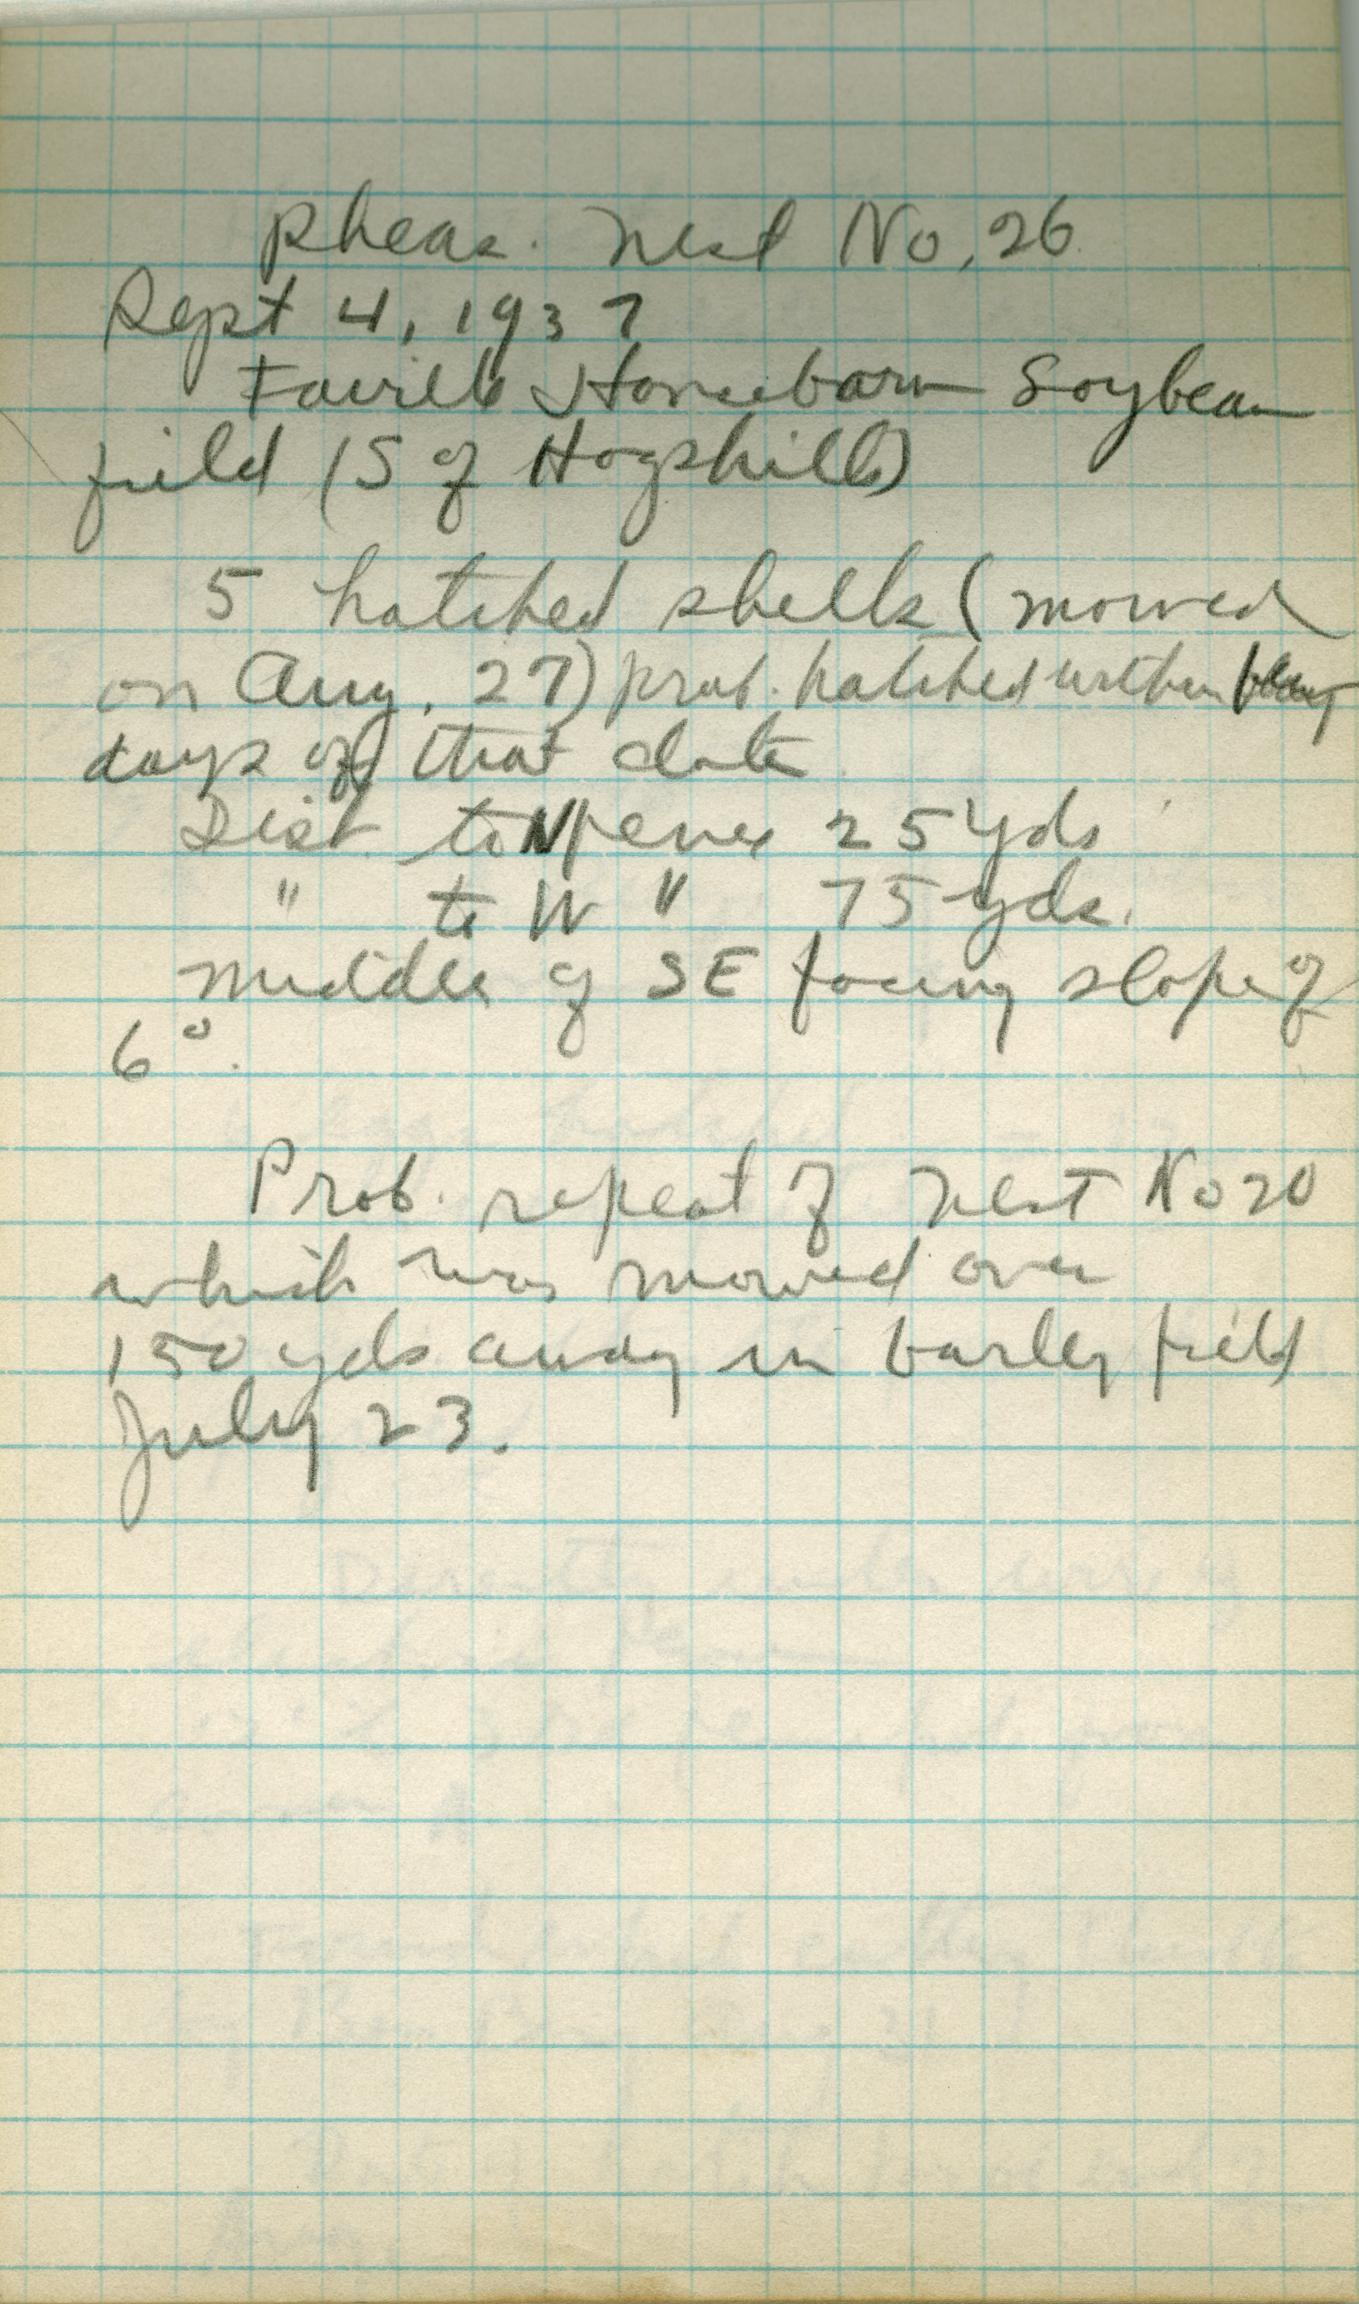 Pheas. Nest No. 26
Sept 4, 1937
Faville Horsebarn Soybean
field (S of Hogshill)
5 hatched shells (mowed
on Aug. 27) prob. hatched within
days of that date
Dist. to N fence 25 yds
" to W " 75 yds.
Middle of SE facing slope of
6°.
Prob. repeat of Nest No 20
which was mowed over
150 yds away in barley field
July 23.